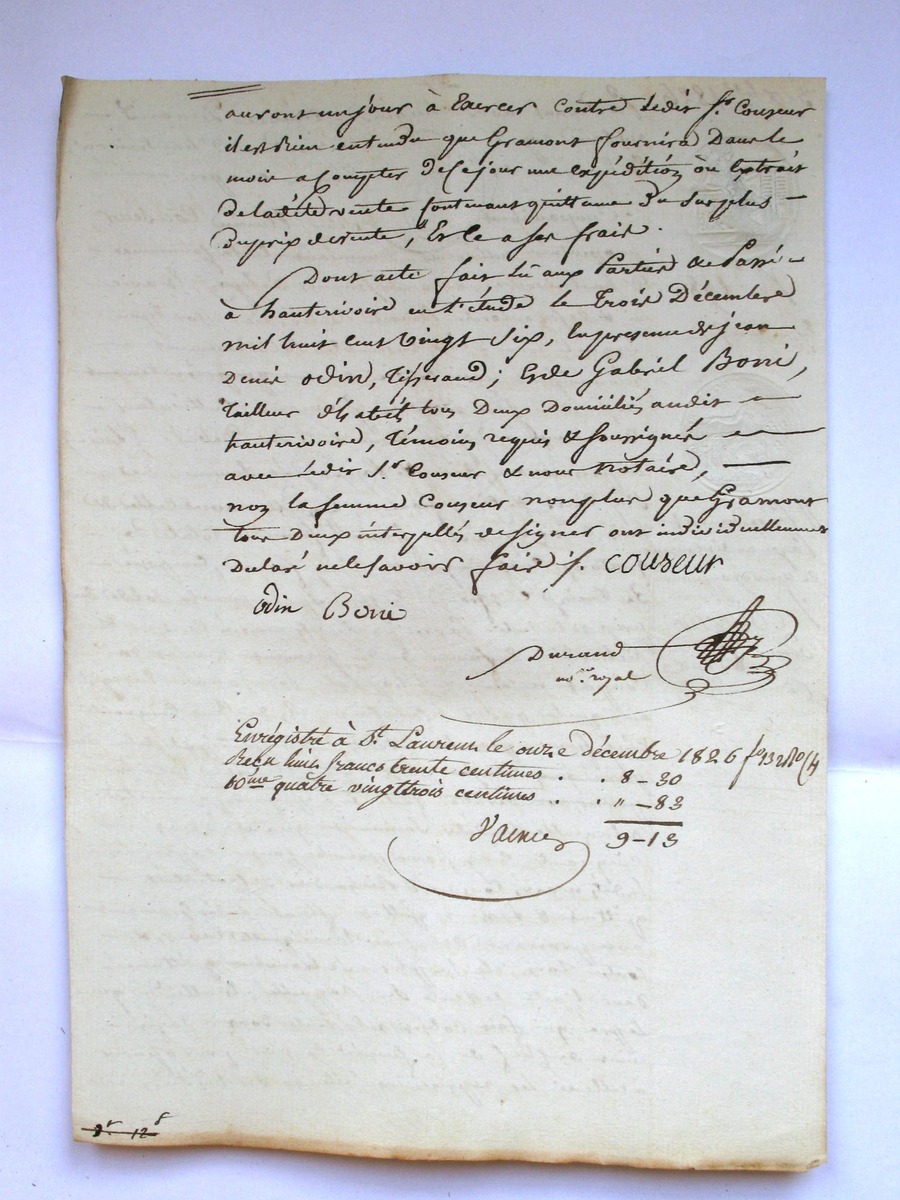 auront un jour à Exercer contre ledit Sr. Couzeur
il est bien entendu que Gramont fournira Dans le
mois a Compter de Ce jour une expédition ou Extrait
de ladite vente contenant quittance du surplus —
Du prix de vente, Et le a ses frais.
Dont acte fait Lu aux Parties & Passé —
à hauterivoire en l'étude le Trois Décembre
mil huit cent vingt Six, En presence de jean
Denis odin, Tisserand; Et de Gabriel Boni,
Tailleur d'habit tous Deux Domiciliés audit —
hauterivoire, Témoins requis & Soussignés —
avec ledit Sr. Couzeur & nous Notaire, —
non la femme Couzeur non plus que Gramont
tous Deux interpellés de signer ont individuellement
Déclaré ne le savoir faire /. couzeur
odin Boni
Durand
nore. royal
Enrégistré à St. Laurent le onze décembre 1826 fo.
Reçu huit francs trente centimes . . 8-30
10me quatre vingt trois centimes . . " -83
9-13